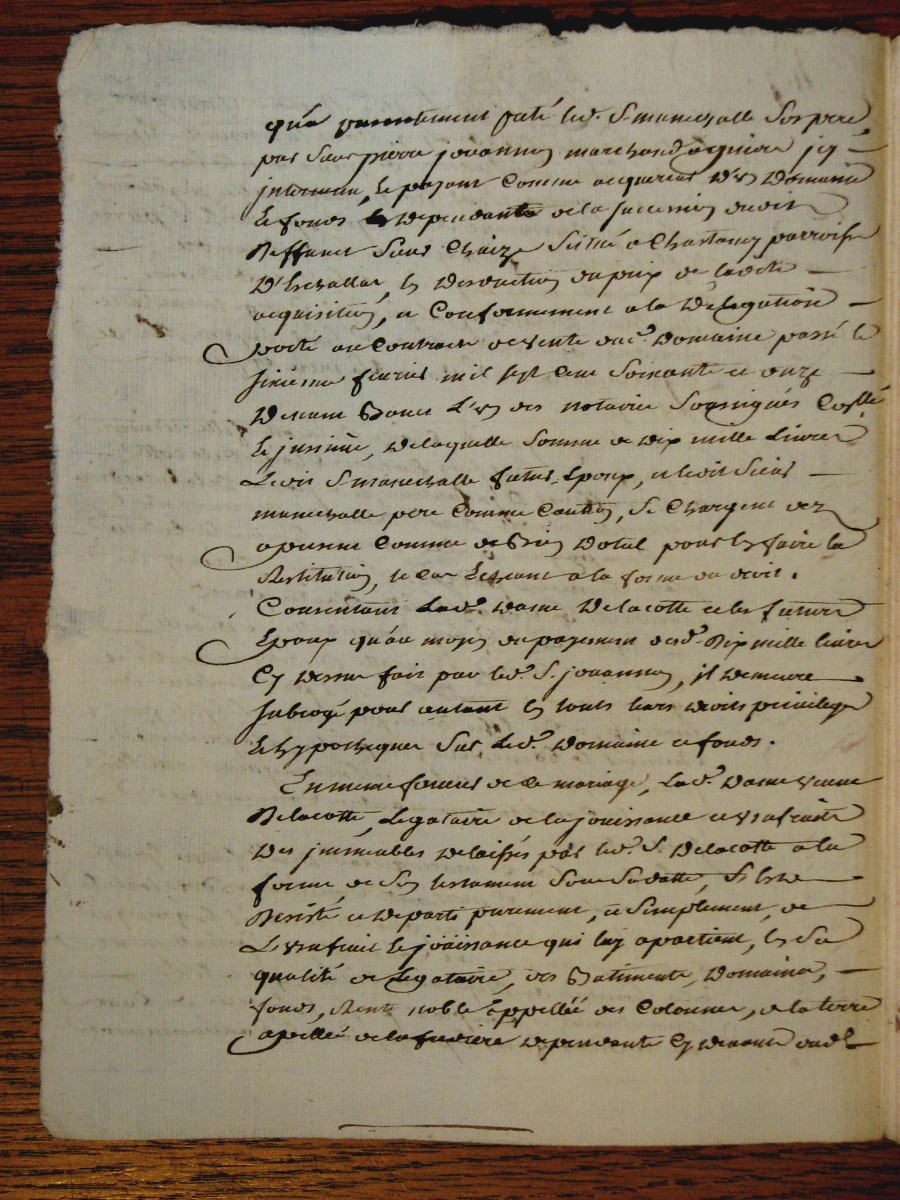 qu'a presentement paié led. S. marechalle son pere,
par Sieur pierre jouannon marchand acquiere icy
intervenu, le payant Comme acquereur d'un Domaine
et fonds dependants de la succession dudit
Deffunt Sieur Chaize Situé a Chastanay parroisse
D'Eschallas, en deduction du prix de ladte
acquisition, et Conformement a la Delegation
porté au Contract de vente dud. Domaine passé le
sixieme feurier mil sept Cent Soixante et onze
devant l'un des notaires Soussignés Collé
et insinué, de laquelle Somme de dix mille Livres
Ledit S. marechalle futur Epoux, et ledit Sieur
marechalle pere Comme Caution, Se Chargent dez
apresent Comme de bien dotal pour en faire la
Restitution, le Cas Echeant a la forme du droit.
Consentant Lad. Dame Delacotte et les futurs
Epoux qu'au moyen du payement desd. Dix mille livres
Cy dessus fait par led. S. jouannon, il demeure
subrogé pour autant en touts leurs droits privileges
et hypotheques Sur Led. Domaine et fonds.
En meme faveur de ce mariage, Lad. Dame veuve
Delacotte, Legataire de la jouissance et usufruit
Des immeubles delaissés par led. S. Delacotte a la
forme de Son testament Sous Sa datte, S'est
Desisté et departi purement, et Simplement, de
L'usufruit et jouissance qui luy apartient, en Sa
qualité de Legataire, des Batiments, Domaines,
fonds, Rente noble appellée des Colonnes, de la terre
apellée de la dependants Cy devant dud.